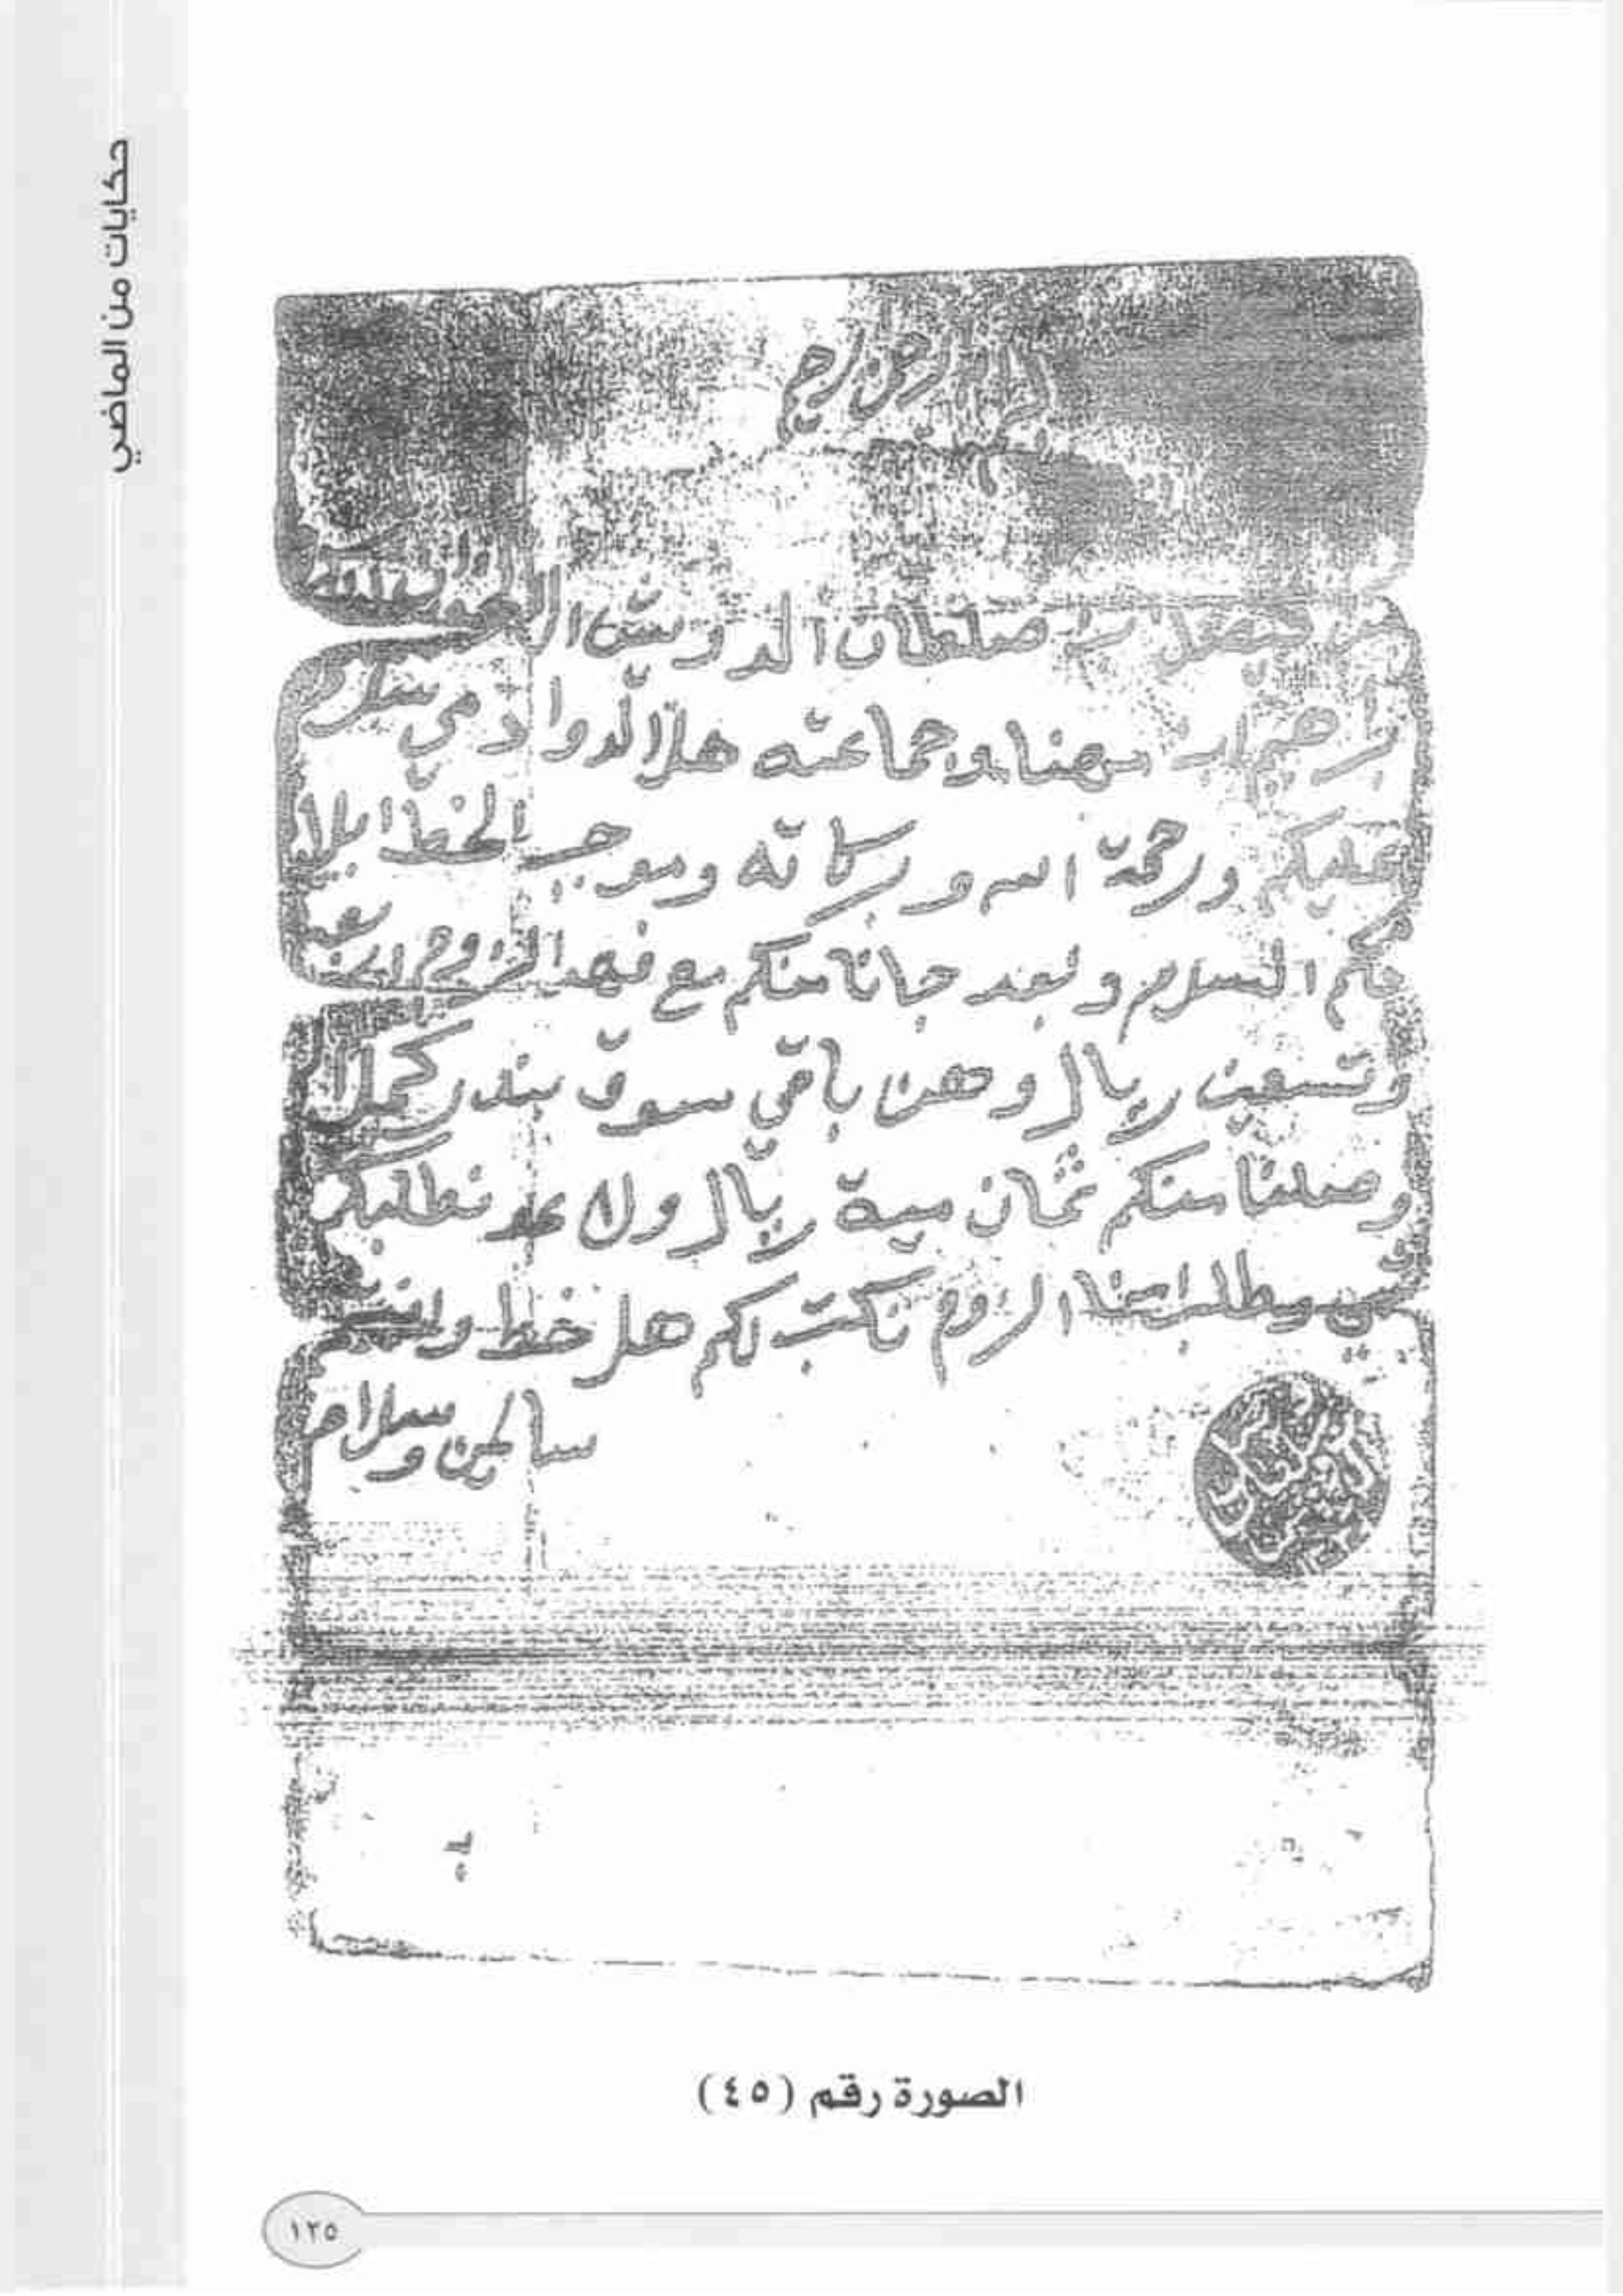 حكايات من الماضي
الرحمن الرحيم
من فيصل ابن صلطان الدويش الا الاخوان
براهيم ابن مهنا وجماعته هل الدوادمي سلام
عليكم ورحمة الله وبركاته وموجب الخط ابلا
غكم السلام وبعد جانا منكم مع فهد
وتسعين ريال وهن باقي سوق بندركم
وصلنا منكم ثمان مية ريال ولا عد نطلبكم
شي وطلب منا الزوم نكتب لكم هل خط وانتم
سالمين وسلام
الصورة رقم (٤٥)
١٢٥